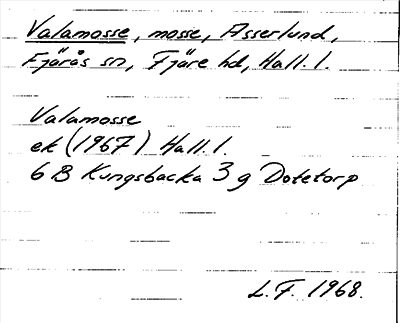 Valamosse, mosse, Asserlund,
Fjärås sn, Fjäre hd, Hall. l.
Valamosse
ek (1967) Hall. l.
6 B Kungsbacka 3 g Dotetorp
L.F. 1968.